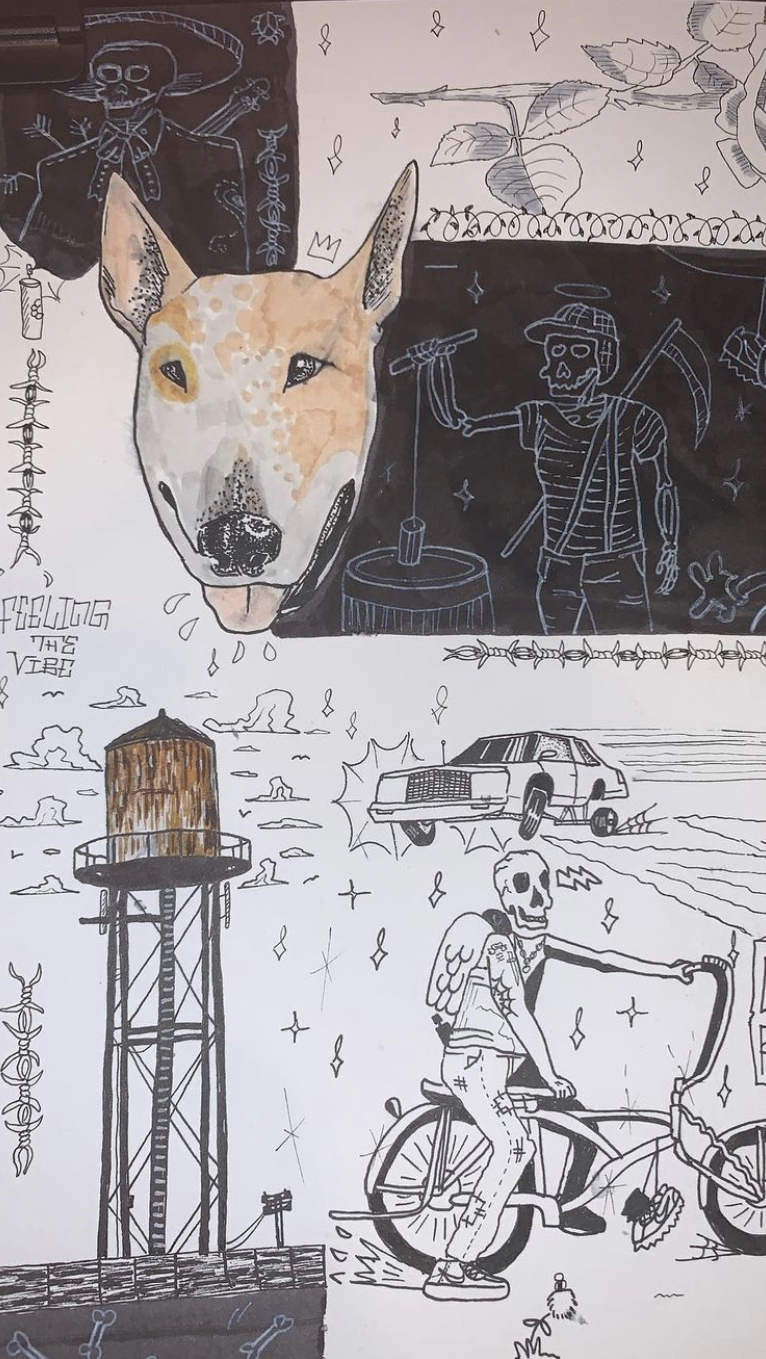 FEELING
THE
VIBE